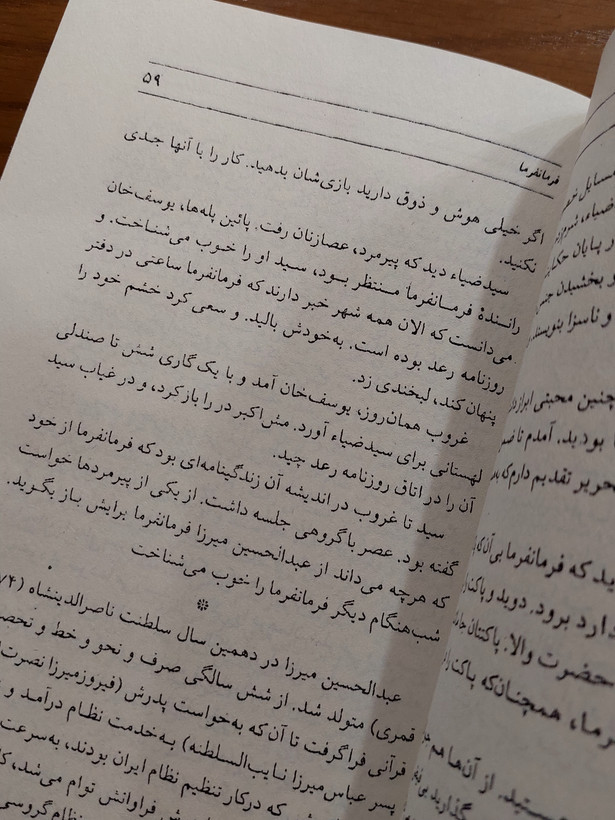 ۵۹
فرمانفرما
اگر خیلی هوش و ذوق دارید بازی‌شان بدهید. کار را با آنها جدی
نکنید.
سیدضیاء دید که پیرمرد، عصازنان رفت. پائین پله‌ها، یوسف‌خان
رانندهٔ فرمانفرما منتظر بود، سید او را خوب می‌شناخت. و
می‌دانست که الان همه شهر خبر دارند که فرمانفرما ساعتی در دفتر
روزنامه رعد بوده است. به‌خودش بالید. و سعی کرد خشم خود را
پنهان کند، لبخندی زد.
غروب همان‌روز، یوسف‌خان آمد و با یک گاری شش تا صندلی
لهستانی برای سیدضیاء آورد. مش‌اکبر در را باز کرد، و در غیاب سید
آن را در اتاق روزنامه رعد چید.
سید تا غروب در اندیشه آن زندگینامه‌ای بود که فرمانفرما از خود
گفته بود. عصر با گروهی جلسه داشت. از یکی از پیرمردها خواست
که هرچه می‌داند از عبدالحسین میرزا فرمانفرما برایش باز بگوید.
شب‌هنگام دیگر فرمانفرما را خوب می‌شناخت
*
عبدالحسین میرزا در دهمین سال سلطنت ناصرالدینشاه (۷۴
قمری) متولد شد. از شش سالگی صرف و نحو و خط و
قرآنی فراگرفت تا آن که به‌خواست پدرش (فیروزمیرزا نصرت
پسر عباس‌میرزا نایب‌السلطنه) به‌خدمت نظام درآمد و
که درکار تنظیم نظام ایران بودند، به‌سرعت
فراوانش توام می‌شد،
نظام گروسی
ضیاء،
پایان
و بخشیدن
و ناسزا بنویسند
چنین محبتی
بودید. آمدم تا
تحریر تقدیم دارم که
ید که فرمانفرما بی‌آن‌که
دارد برود. دوید و پاکت
حضرت والا. پاکتتان
رما، همچنان‌که پاکت
ستید. از آن‌ها هم
گذارید